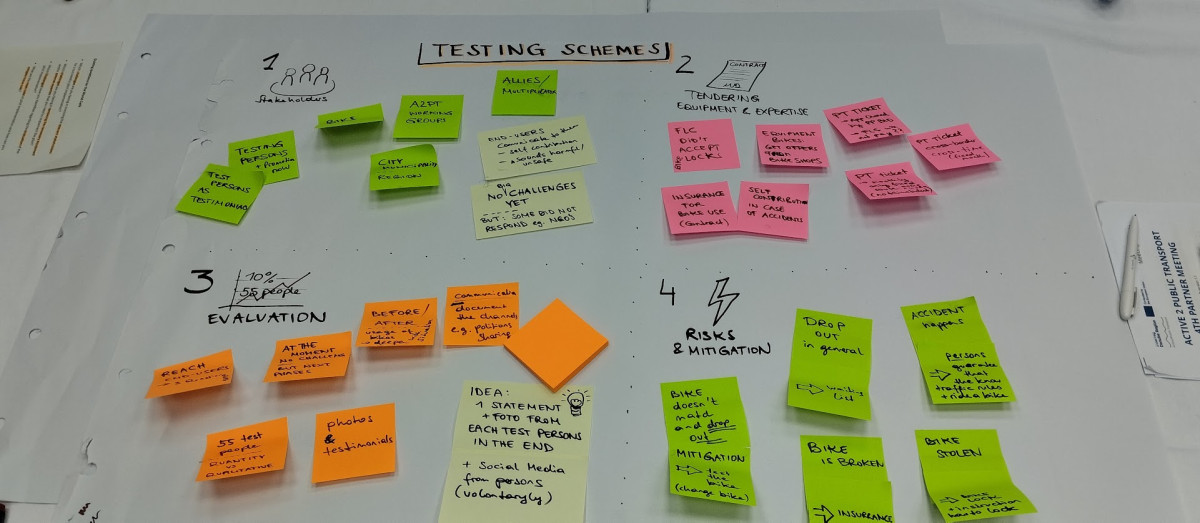 TESTING SCHEMES
1
Stakeholders
TESTING
PERSONS
TEST
PERSONS
AS
BIKES
A2PT
WORKING
GROUPS
CITY
MUNICIPALITY
REGION
ALLIES/
END-USERS
communicate to them
- self contribution
sounds harmful/
unsafe
NO CHALLENGES
YET
BUT: SOME DID NOT
RESPOND eg. NGOS
2
CONTRACT
TENDERING
EQUIPMENT & EXPERTISE
FLC
DID'T
ACCEPT
LOCKS
EQUIPMENT
BIKES:
GET OFFERS
BIKE SHOPS
PT TICKET
PT ticket
cross-border
PT ticket
INSURANCE
FOR
BIKE USE
(Contract)
SELF
CONTRIBUTION
IN CASE
OF ACCIDENTS
3
10%
55 people
EVALUATION
REACH
END USERS
AT THE
MOMENT
NO CHALLENGE
BUT NEXT
PHASES
BEFORE/
AFTER
usage of
bikes
document
the channels
e.g. politions
sharing
55 test
people
QUANTITY VS
QUALITATIVE
photos
&
testimonials
IDEA:
1 STATEMENT
+ FOTO FROM
EACH TEST PERSONS
IN THE END
+ Social Media
from persons
(voluntaryly)
4
RISKS
& MITIGATION
DROP
OUT
in general
⇒ waiting
list
ACCIDENT
happens
⇒ persons
guarantee that
the know
traffic rules
+ ride a bike
BIKE
doesn't
match
and drop
out
MITIGATION
⇒ test
the
bike
(change bike)
BIKE
IS BROKEN
⇒ INSURRANCE
BIKE
STOLEN
⇒ bike
lock
+ instruction
how to lock
ACTIVE 2 PUBLIC TRANSPORT
4TH PARTNER MEETING